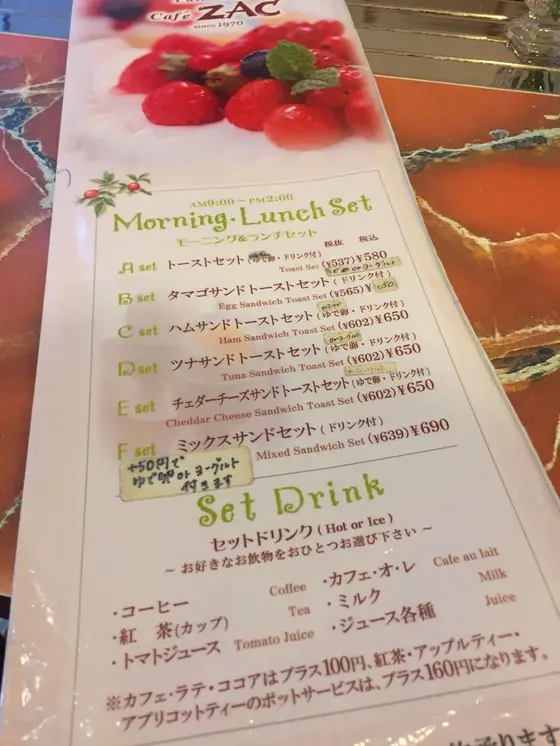 Café ZAC
since 1970
AM9:00～PM2:00
Morning・Lunch Set
モーニング&ランチセット
税抜 税込
A set トーストセット(ゆで卵・ドリンク付)
Toast Set (¥537) ¥580
ゆで卵 or ヨーグルト
B set タマゴサンドトーストセット(ドリンク付)
Egg Sandwich Toast Set (¥565) ¥650
C set ハムサンドトーストセット(ゆで卵・ドリンク付)
Ham Sandwich Toast Set (¥602) ¥650
orヨーグルト
D set ツナサンドトーストセット(ゆで卵・ドリンク付)
Tuna Sandwich Toast Set (¥602) ¥650
E set チェダーチーズサンドトーストセット(ゆで卵・ドリンク付)
Cheddar Cheese Sandwich Toast Set (¥602) ¥650
F set ミックスサンドセット(ドリンク付)
Mixed Sandwich Set (¥639) ¥690
+50円で
ゆで卵 or ヨーグルト
付きます
Set Drink
セットドリンク(Hot or Ice)
～お好きなお飲物をおひとつお選び下さい～
・コーヒー Coffee
・紅 茶(カップ) Tea
・トマトジュース Tomato Juice
・カフェ・オ・レ Cafe au lait
・ミルク Milk
・ジュース各種 Juice
※カフェ・ラテ・ココアはプラス100円、紅茶・アップルティー・
アプリコットティーのポットサービスは、プラス160円になります。
承ります